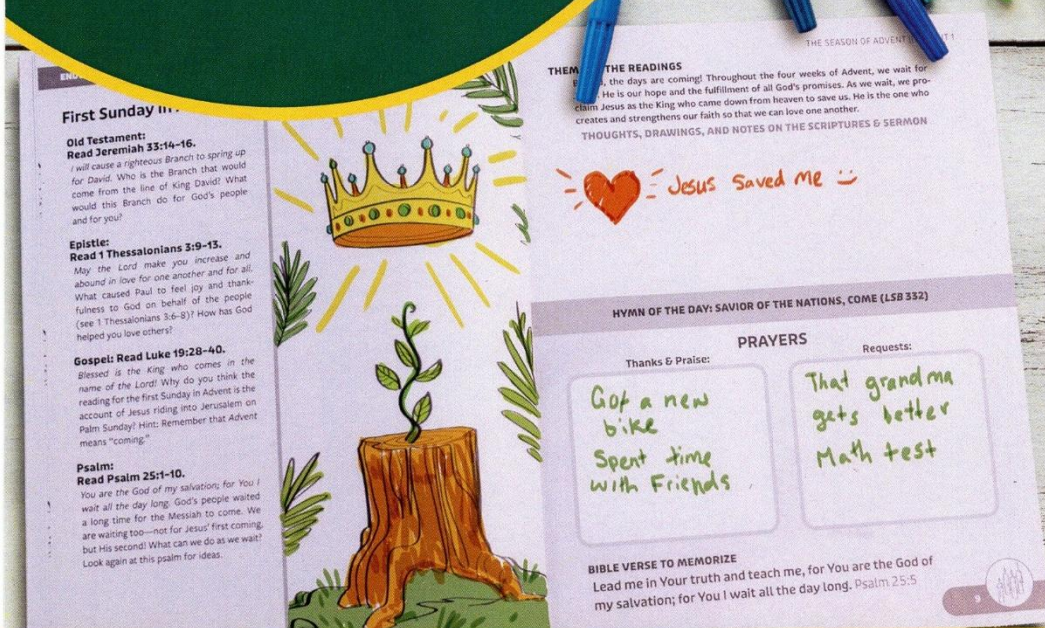 First Sunday in
Old Testament:
Read Jeremiah 33:14–16.
I will cause a righteous Branch to spring up
for David. Who is the Branch that would
come from the line of King David? What
would this Branch do for God's people
and for you?
Epistle:
Read 1 Thessalonians 3:9–13.
May the Lord make you increase and
abound in love for one another and for all.
What caused Paul to feel joy and thank-
fulness to God on behalf of the people
(see 1 Thessalonians 3:6–8)? How has God
helped you love others?
Gospel: Read Luke 19:28–40.
Blessed is the King who comes in the
name of the Lord! Why do you think the
reading for the first Sunday in Advent is the
account of Jesus riding into Jerusalem on
Palm Sunday? Hint: Remember that Advent
means "coming."
Psalm:
Read Psalm 25:1–10.
You are the God of my salvation; for You I
wait all the day long. God's people waited
a long time for the Messiah to come. We
are waiting too—not for Jesus' first coming,
but His second! What can we do as we wait?
Look again at this psalm for ideas.
THE SEASON OF ADVENT
THE READINGS
the days are coming! Throughout the four weeks of Advent, we wait for
He is our hope and the fulfillment of all God's promises. As we wait, we pro-
claim Jesus as the King who came down from heaven to save us. He is the one who
creates and strengthens our faith so that we can love one another.
THOUGHTS, DRAWINGS, AND NOTES ON THE SCRIPTURES & SERMON
Jesus saved me
HYMN OF THE DAY: SAVIOR OF THE NATIONS, COME (LSB 332)
PRAYERS
Thanks & Praise:
Got a new
bike
Spent time
with Friends
Requests:
That grandma
gets better
Math test
BIBLE VERSE TO MEMORIZE
Lead me in Your truth and teach me, for You are the God of
my salvation; for You I wait all the day long. Psalm 25:5
9